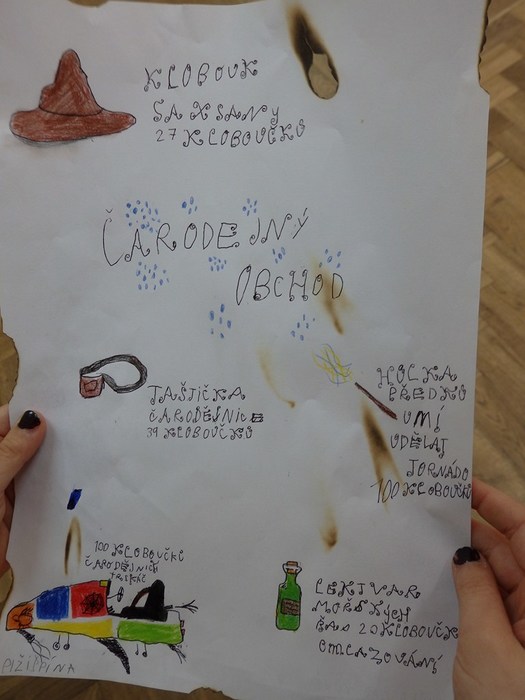 KLOBOUK
SAXSANY
27 KLOBOUČKŮ
ČARODEJNÝ
OBCHOD
TAŠTIČKA
ČARODĚJNIC
39 KLOBOUČKŮ
HOLKA
PŘEDKŮ
UMÍ
UDĚLAJ
TORNÁDO
100 KLOBOUČKŮ
100 KLOBOUČKŮ
ČARODĚJNICH
PIŽIŠPÍNA
LEKTVAR
MOŘSKÝCH
ŘAS 20 KLOBOUČK
OMLAZOVÁNÍ